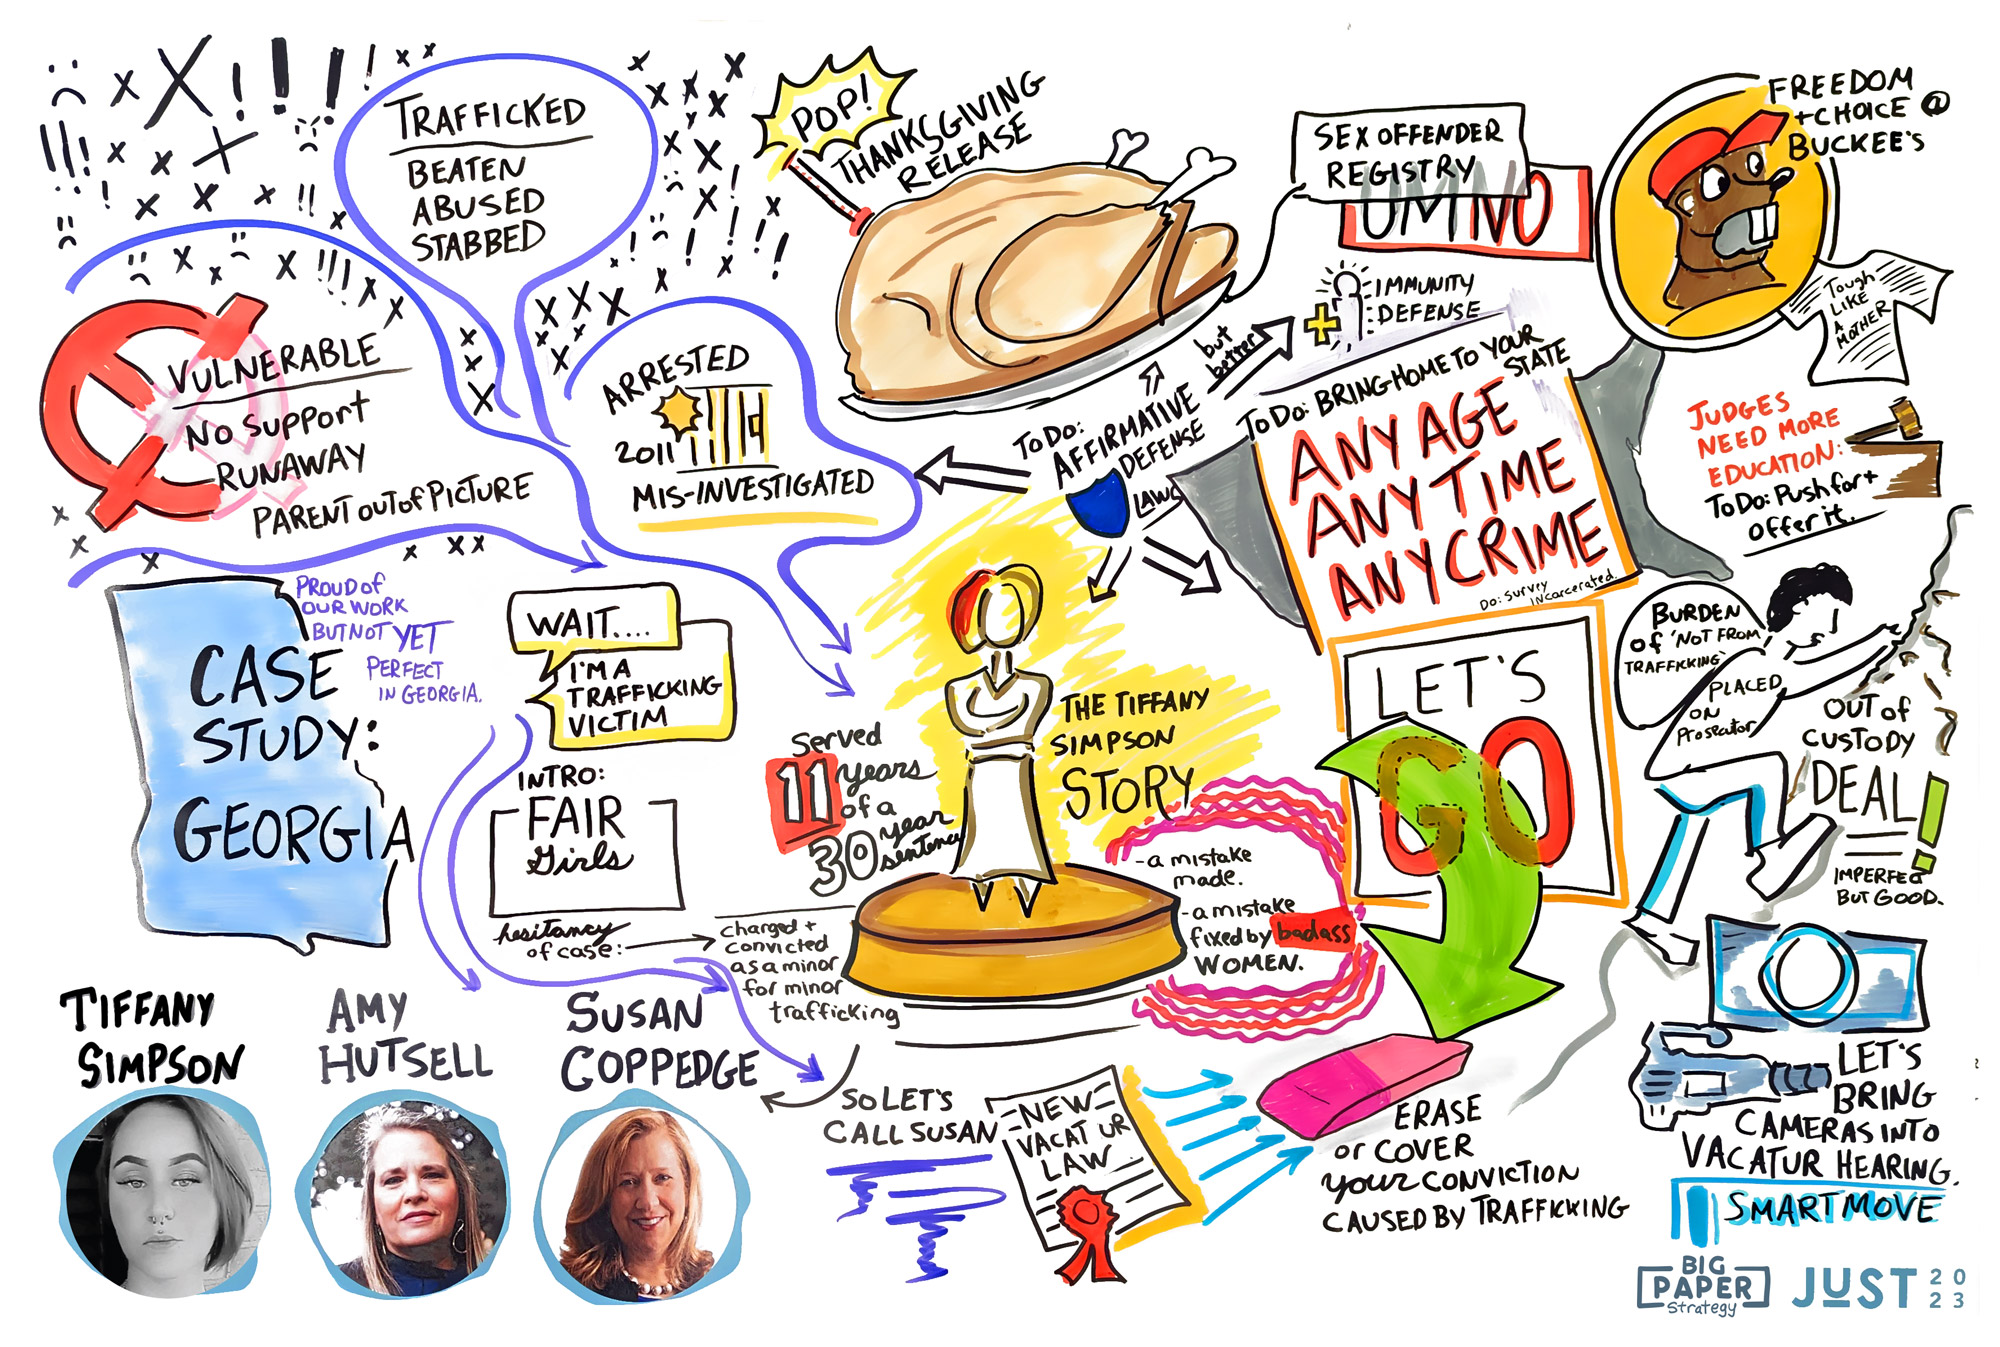 TRAFFICKED
BEATEN
ABUSED
STABBED
VULNERABLE
NO SUPPORT
RUNAWAY
PARENT OUT OF PICTURE
ARRESTED
2011
MIS-INVESTIGATED
POP!
THANKSGIVING
RELEASE
SEX OFFENDER
REGISTRY
UM NO
FREEDOM
+ CHOICE @
BUCKEE'S
Tough
LIKE
A
MOTHER
IMMUNITY
DEFENSE
but
better
TO DO:
AFFIRMATIVE
DEFENSE
LAWS
TO DO: BRING HOME TO YOUR
STATE
ANY AGE
ANY TIME
ANY CRIME
DO: SURVEY
INCARCERATED.
JUDGES
NEED MORE
EDUCATION:
TO DO: PUSH for +
offer it.
CASE
STUDY:
GEORGIA
PROUD of
OUR WORK
BUT NOT YET
PERFECT
IN GEORGIA.
WAIT....
I'M A
TRAFFICKING
VICTIM
INTRO:
FAIR
Girls
hesitancy
of case:
charged +
convicted
as a minor
for minor
trafficking
Served
11 years
of a
30 year
sentence
THE TIFFANY
SIMPSON
STORY
- a mistake
made.
- a mistake
fixed by badass
WOMEN.
LET'S
GO
BURDEN
of 'NOT FROM
TRAFFICKING'
PLACED
ON
Prosecutor
OUT of
CUSTODY
DEAL!
IMPERFECT
BUT GOOD.
TIFFANY
SIMPSON
AMY
HUTSELL
SUSAN
COPPEDGE
SO LET'S
CALL SUSAN
NEW
VACATUR
LAW
ERASE
or COVER
your CONVICTION
CAUSED BY TRAFFICKING
LET'S
BRING
CAMERAS INTO
VACATUR HEARING.
SMART MOVE
BIG
PAPER
Strategy
JUST 2023